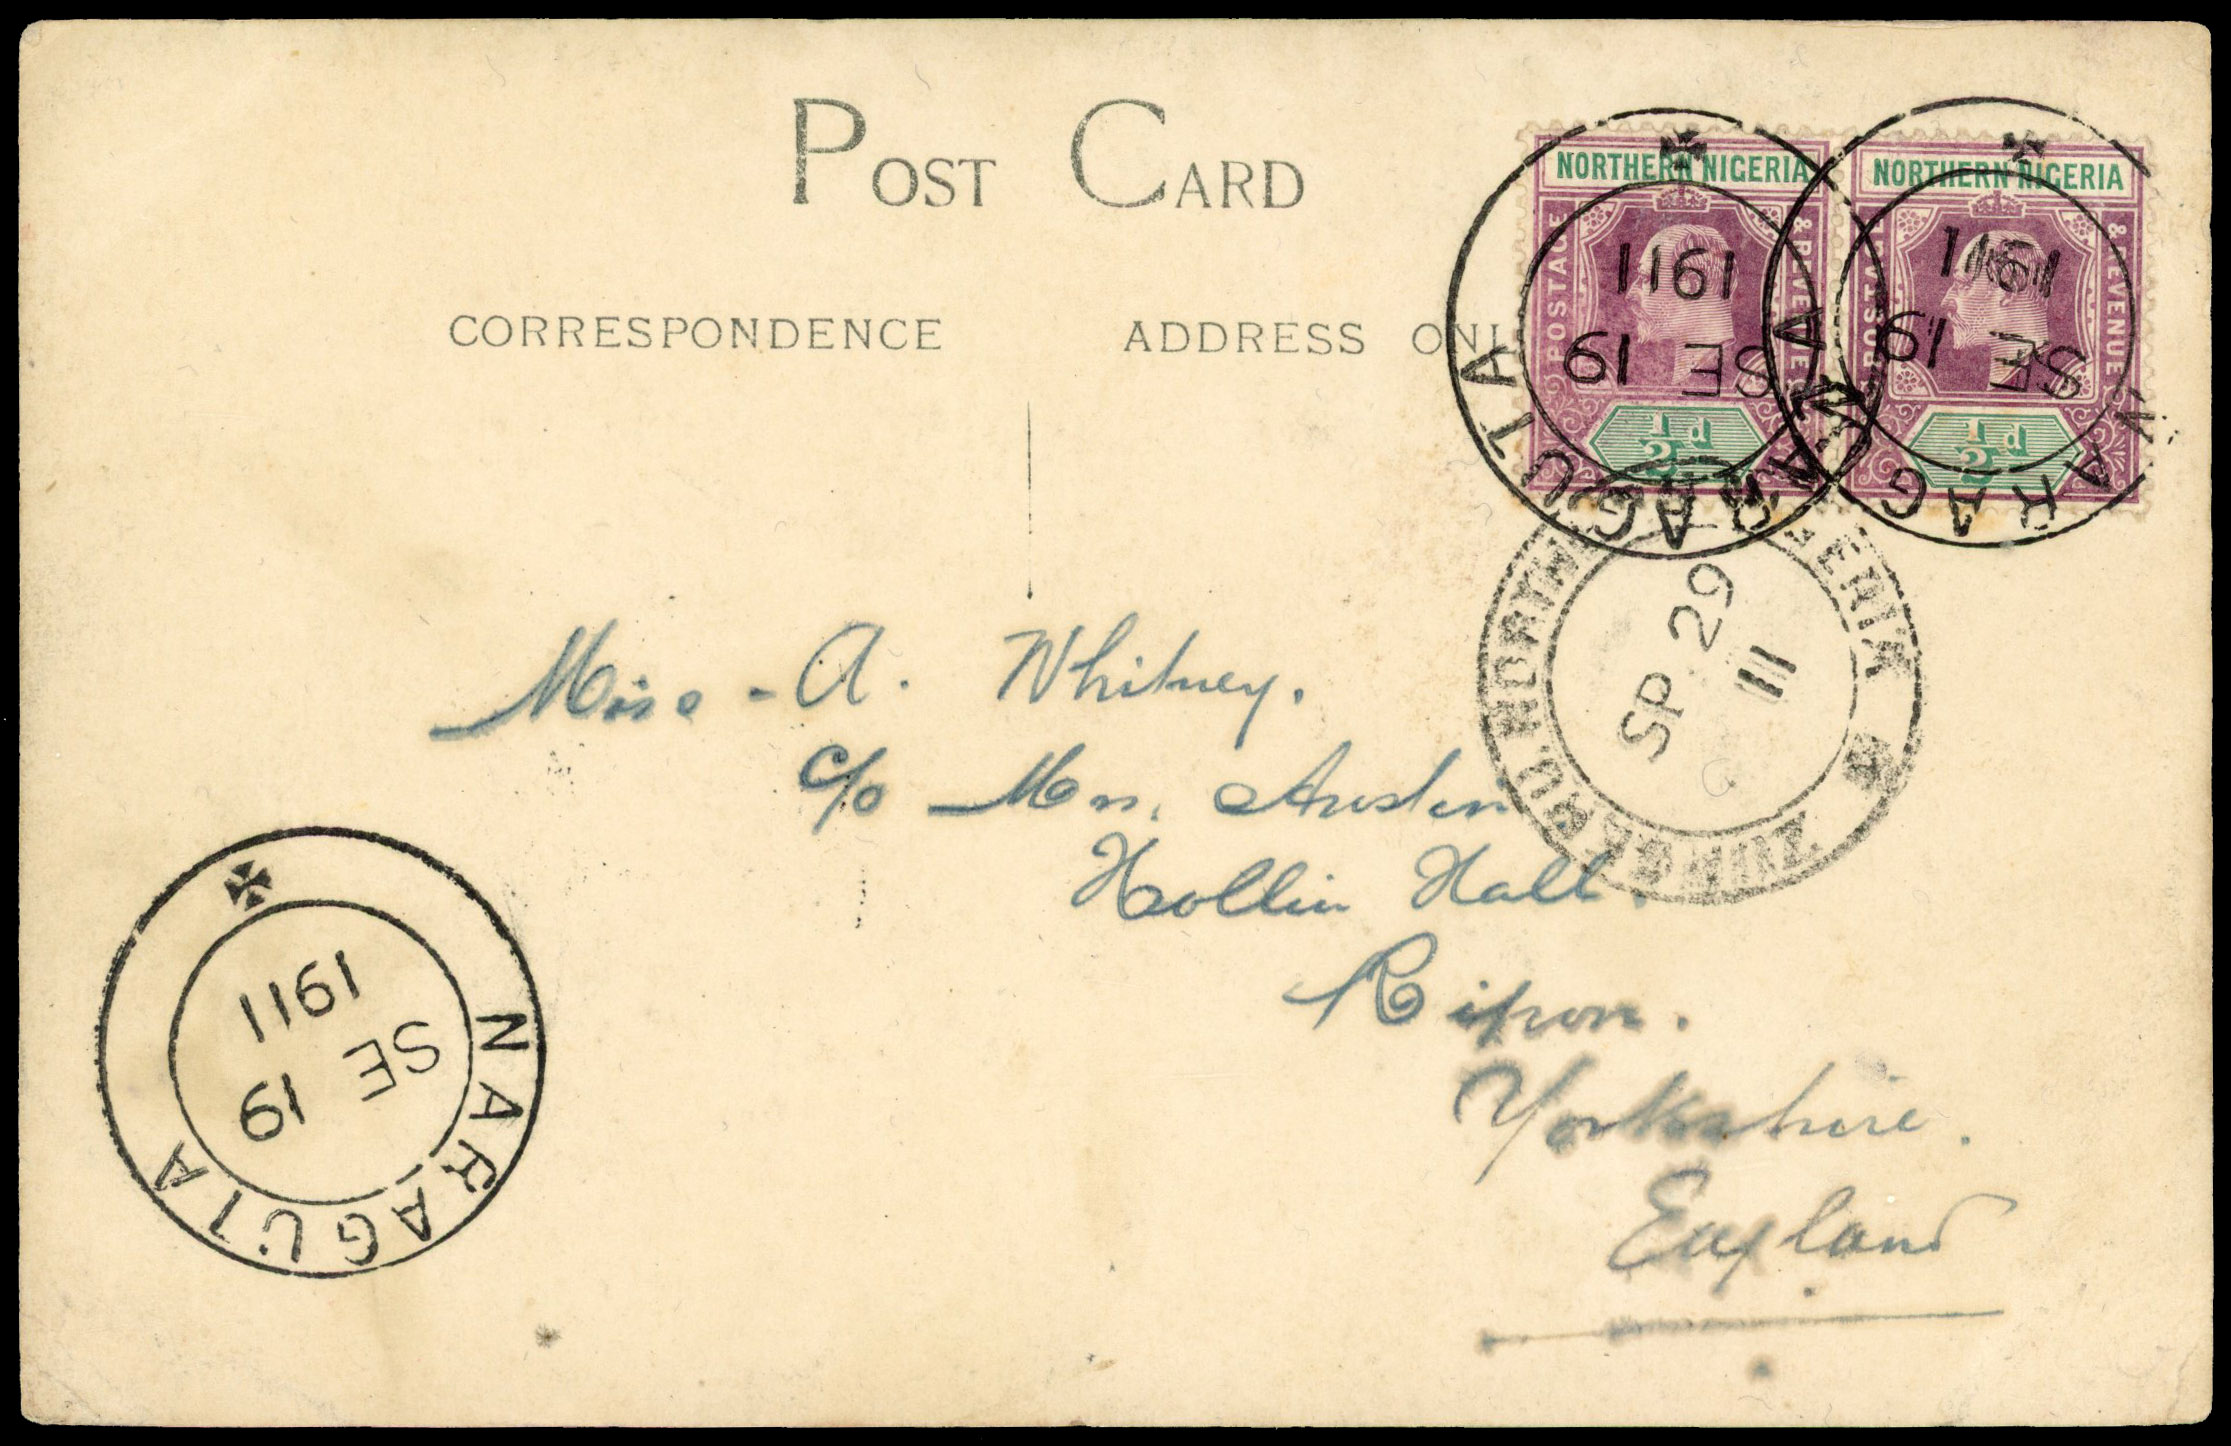 POST CARD
CORRESPONDENCE
ADDRESS ONL
NORTHERN NIGERIA
POSTAGE & REVENUE
½d
NORTHERN NIGERIA
POSTAGE & REVENUE
½d
NARAGUTA
1911
SE 19
NARAG
1911
SE 19
ZUNGERU NORTH
SP 29
11
Miss - A. Whitney.
c/o Mrs. Austin
Hollin Hall.
Ripon.
Yorkshire.
England
NARAGUTA
1911
SE
19